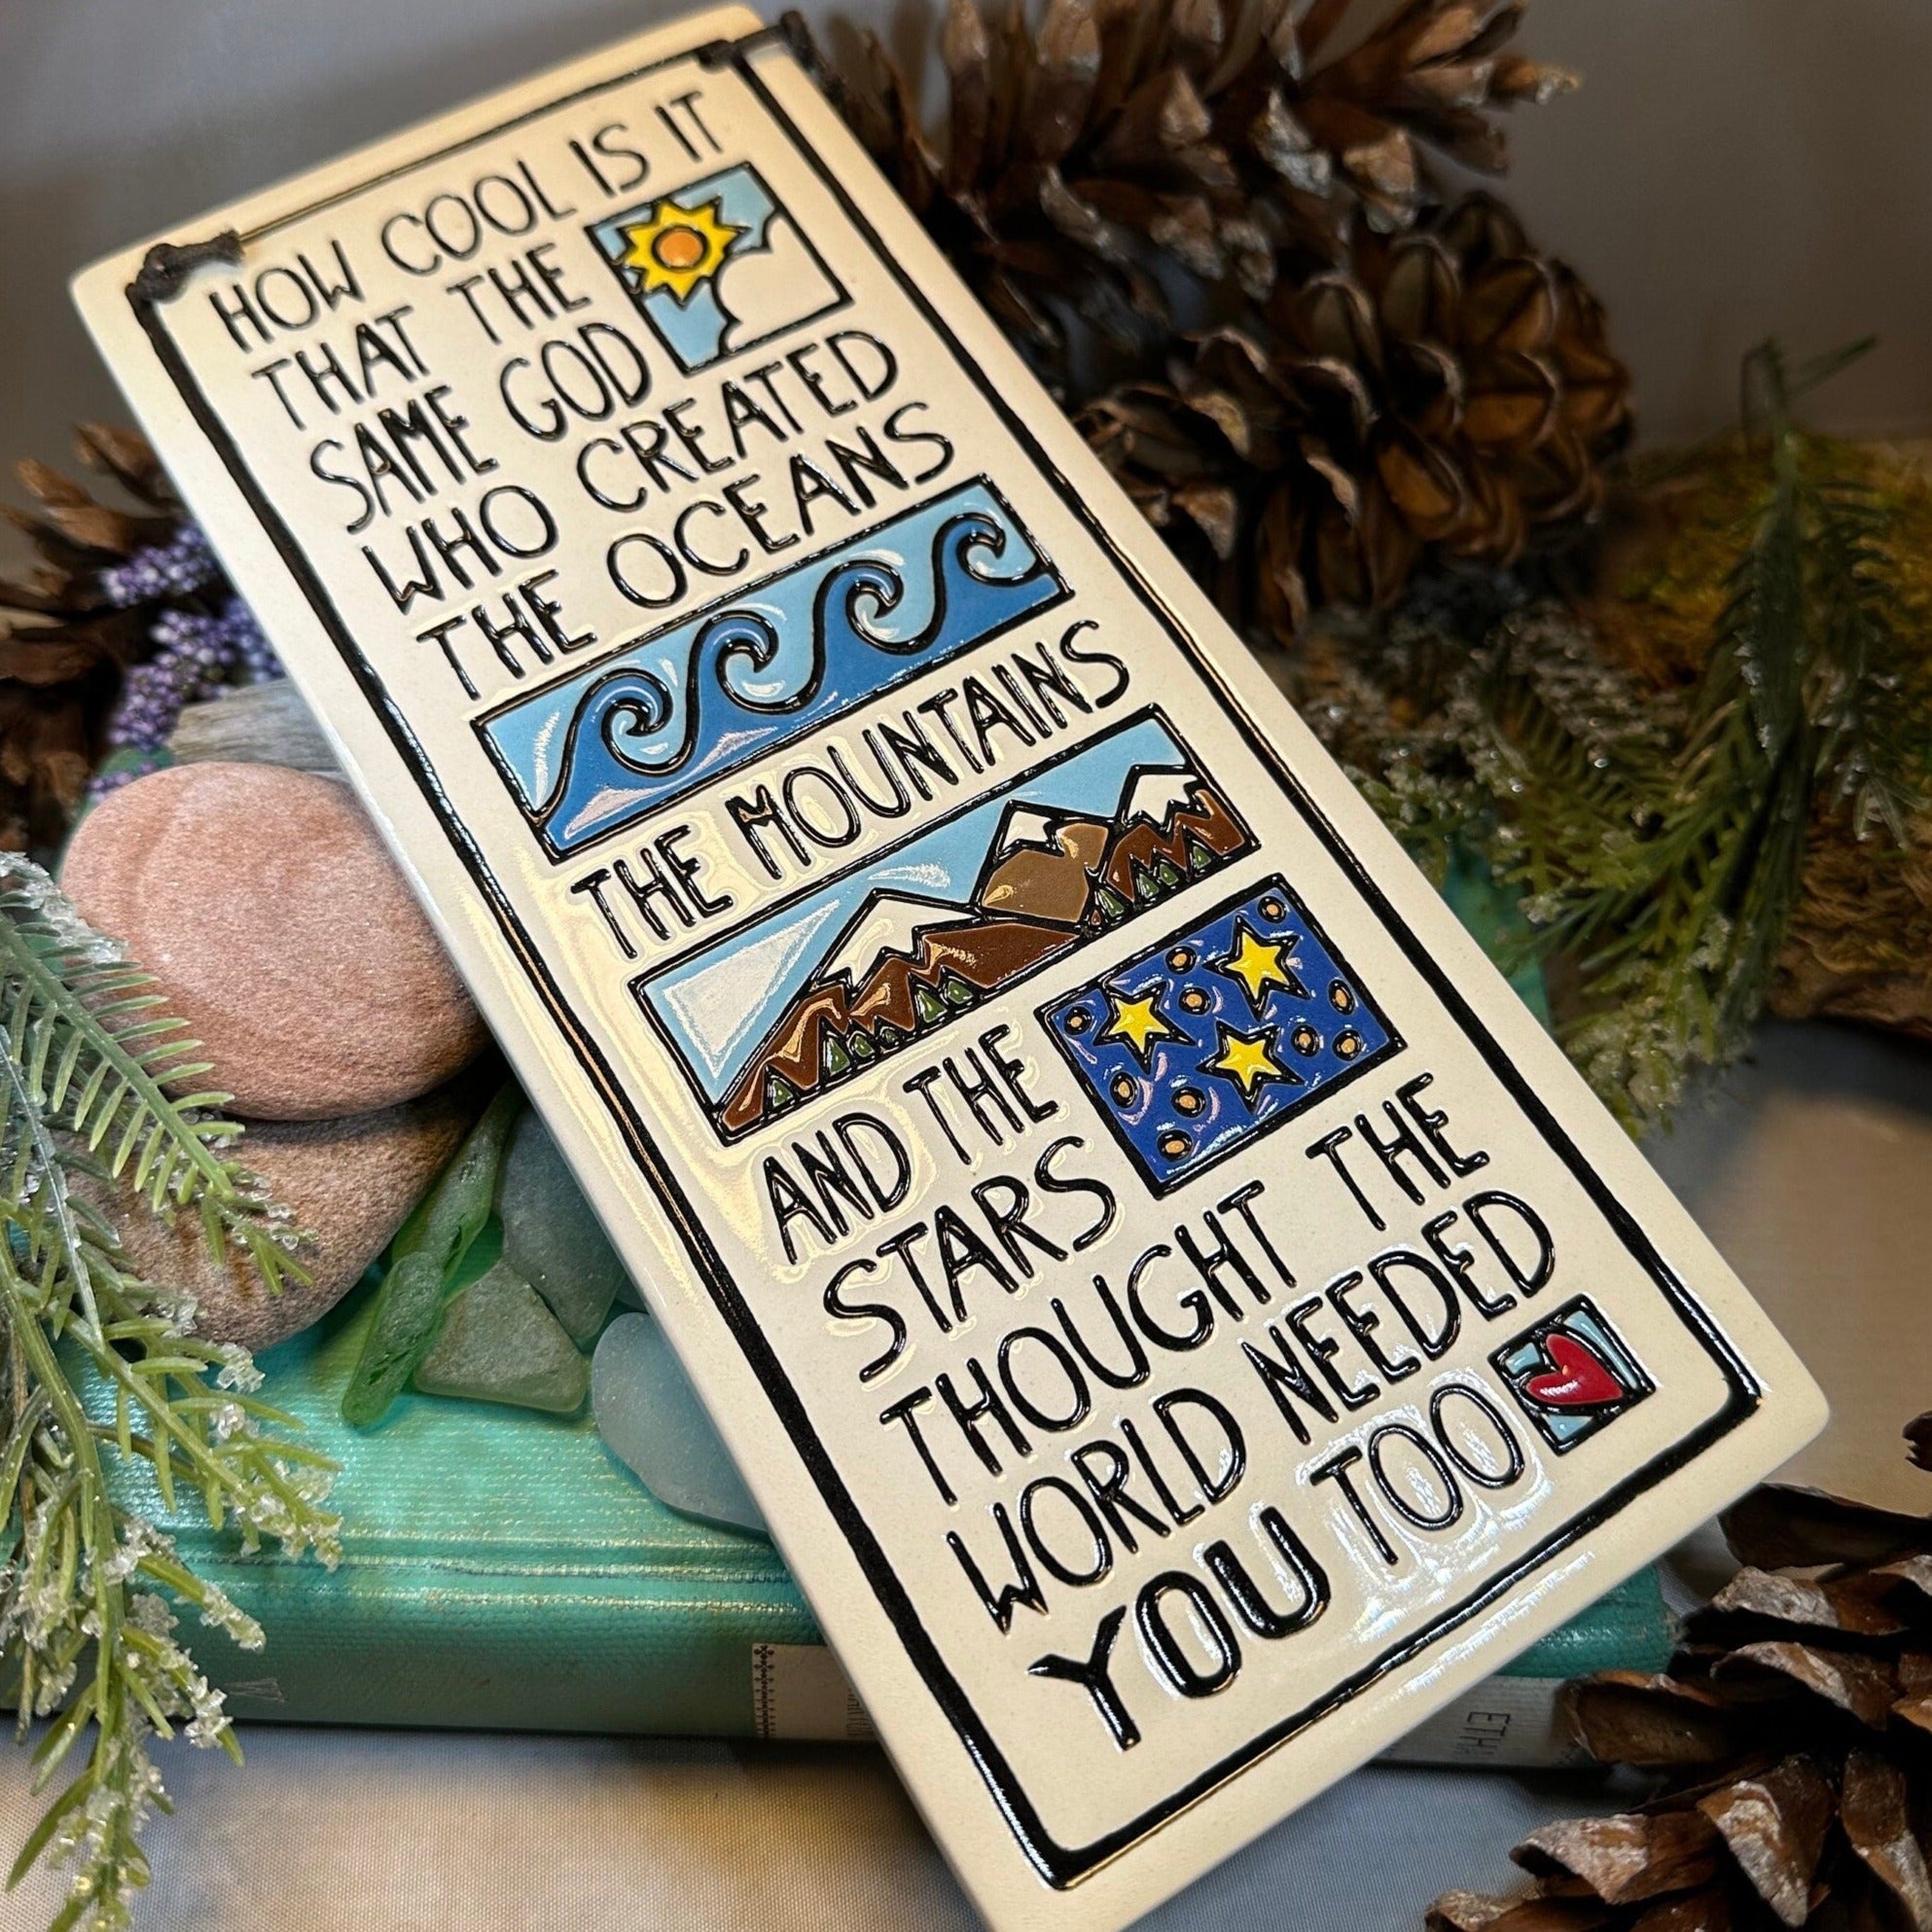 HOW COOL IS IT
THAT THE
SAME GOD
WHO CREATED
THE OCEANS
THE MOUNTAINS
AND THE
STARS
THOUGHT THE
WORLD NEEDED
YOU TOO